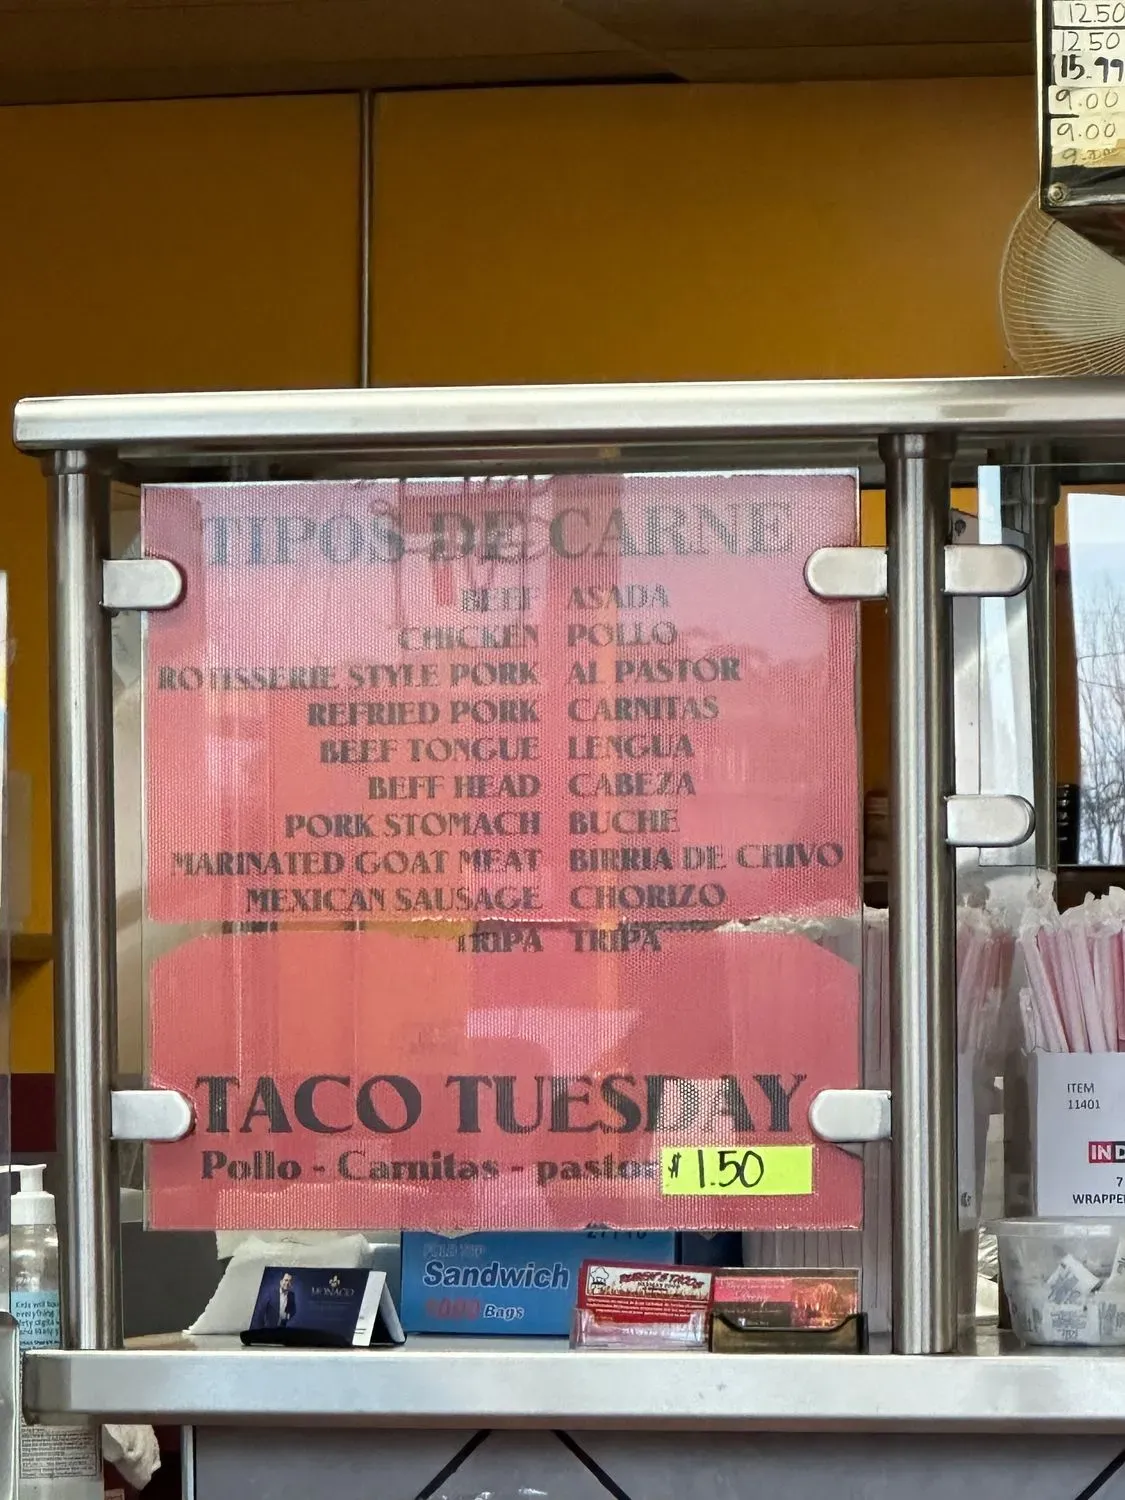 12.50
12.50
15.99
9.00
9.00
TIPOS DE CARNE
BEEF ASADA
CHICKEN POLLO
ROTISSERIE STYLE PORK AL PASTOR
REFRIED PORK CARNITAS
BEEF TONGUE LENGUA
BEFF HEAD CABEZA
PORK STOMACH BUCHE
MARINATED GOAT MEAT BIRRIA DE CHIVO
MEXICAN SAUSAGE CHORIZO
TRIPA TRIPA
TACO TUESDAY
Pollo - Carnitas - pastor $ 1.50
ITEM
11401
IND
7
WRAPPE
Sandwich
Bags
MONACO